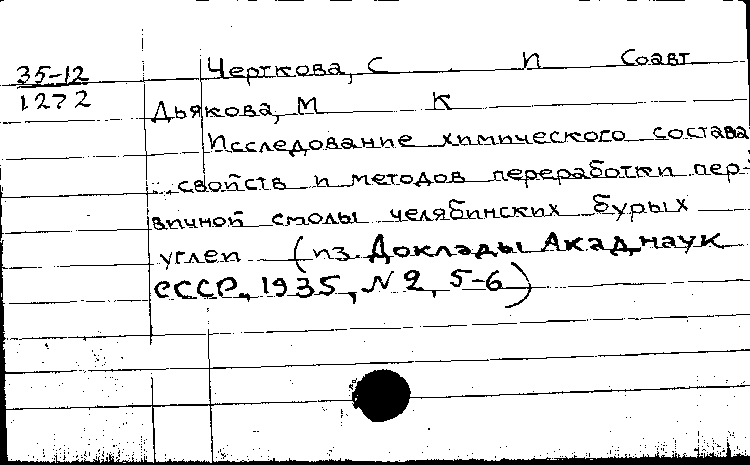 35-12
1272
Черткова, С И Соавт
Дьякова, М К
Исследование химического состава
свойств и методов переработки пер-
вичной смолы челябинских бурых
углей (из Доклады Акад, наук
СССР, 1935, № 2, 5-6)